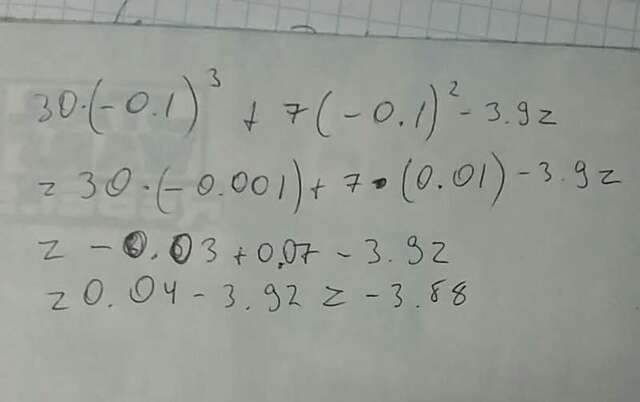 30·(-0.1)³ + 7(-0.1)² - 3.92
= 30·(-0.001) + 7·(0.01) - 3.92
= -0.03 + 0.07 - 3.92
= 0.04 - 3.92 = -3.88